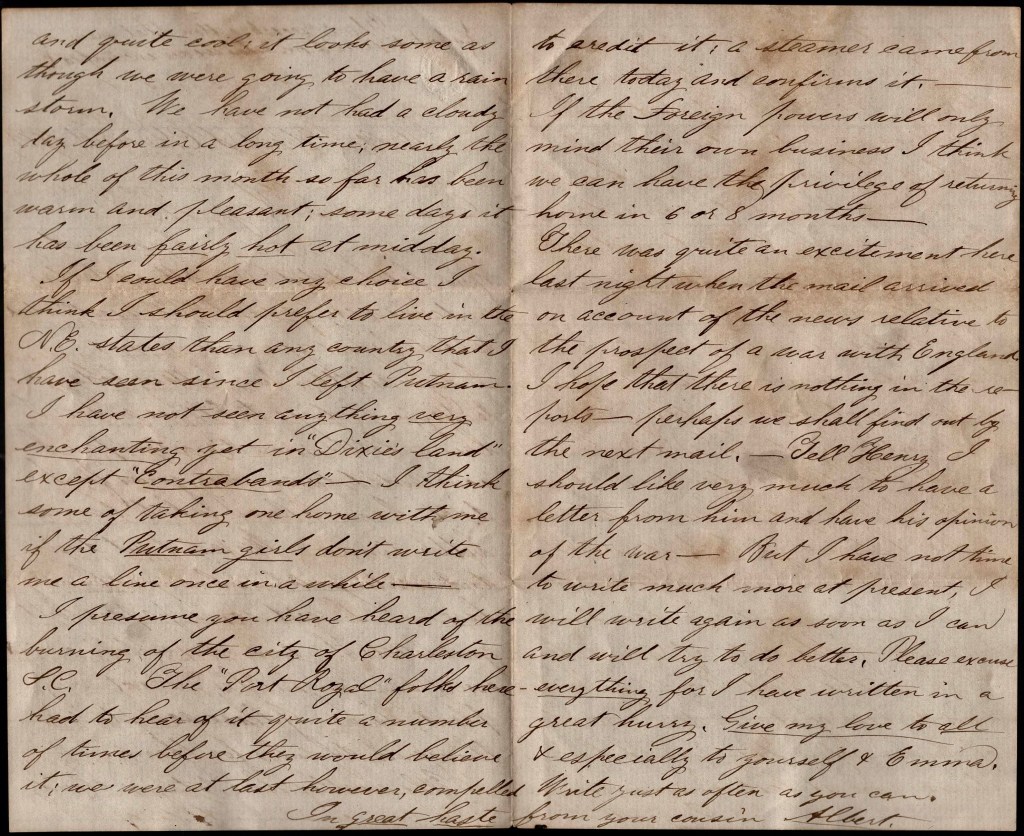 and quite cool; it looks some as
though we were going to have a rain
storm. We have not had a cloudy
day before in a long time; nearly the
whole of this month so far has been
warm and pleasant; some days it
has been fairly hot at midday.
If I could have my choice I
think I should prefer to live in the
N.E. states than any country that I
have seen since I left Putnam.
I have not seen anything very
enchanting yet in "Dixie's land"
except "Contrabands" — I think
some of taking one home with me
if the Putnam girls don't write
me a line once in a while —
I presume you have heard of the
burning of the city of Charleston
S.C. The "Port Royal" folks here
had to hear of it quite a number
of times before they would believe
it; we were at last however, compelled
In great haste
to credit it; a steamer came from
there today and confirms it. —
If the Foreign powers will only
mind their own business I think
we can have the privilege of returning
home in 6 or 8 months —
There was quite an excitement here
last night when the mail arrived
on account of the news relative to
the prospect of a war with England
I hope that there is nothing in the re-
ports — perhaps we shall find out by
the next mail. — Tell Henry I
should like very much to have a
letter from him and have his opinion
of the war — But I have not time
to write much more at present, I
will write again as soon as I can
and will try to do better. Please excuse
everything for I have written in a
great hurry. Give my love to all
& especially to yourself & Emma.
Write just as often as you can.
from your cousin Albert.